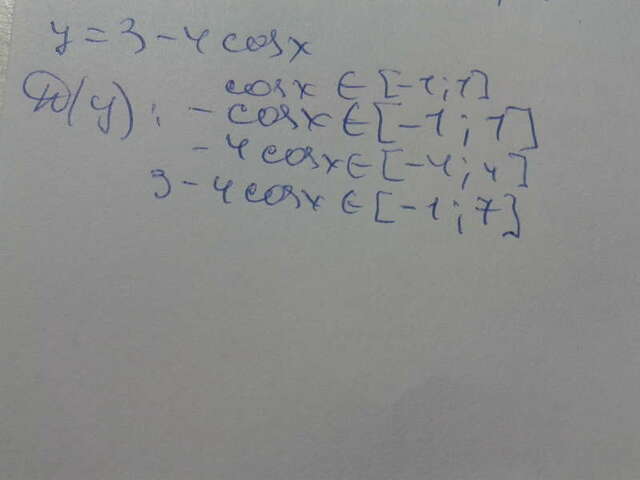 y = 3 - 4 cosx
cosx ∈ [-1; 1]
D(y): - cosx ∈ [-1; 1]
- 4 cosx ∈ [-4; 4]
3 - 4 cosx ∈ [-1; 7]